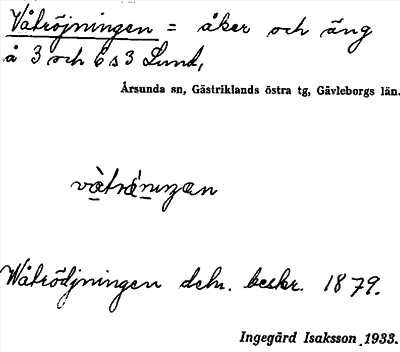 Våtröjningen = åker och äng
å 3 och 6 s 3 Lund,
Årsunda sn, Gästriklands östra tg, Gävleborgs län.
Wåtrödjningen dehn. beskr. 1879.
Ingegärd Isaksson 1933.